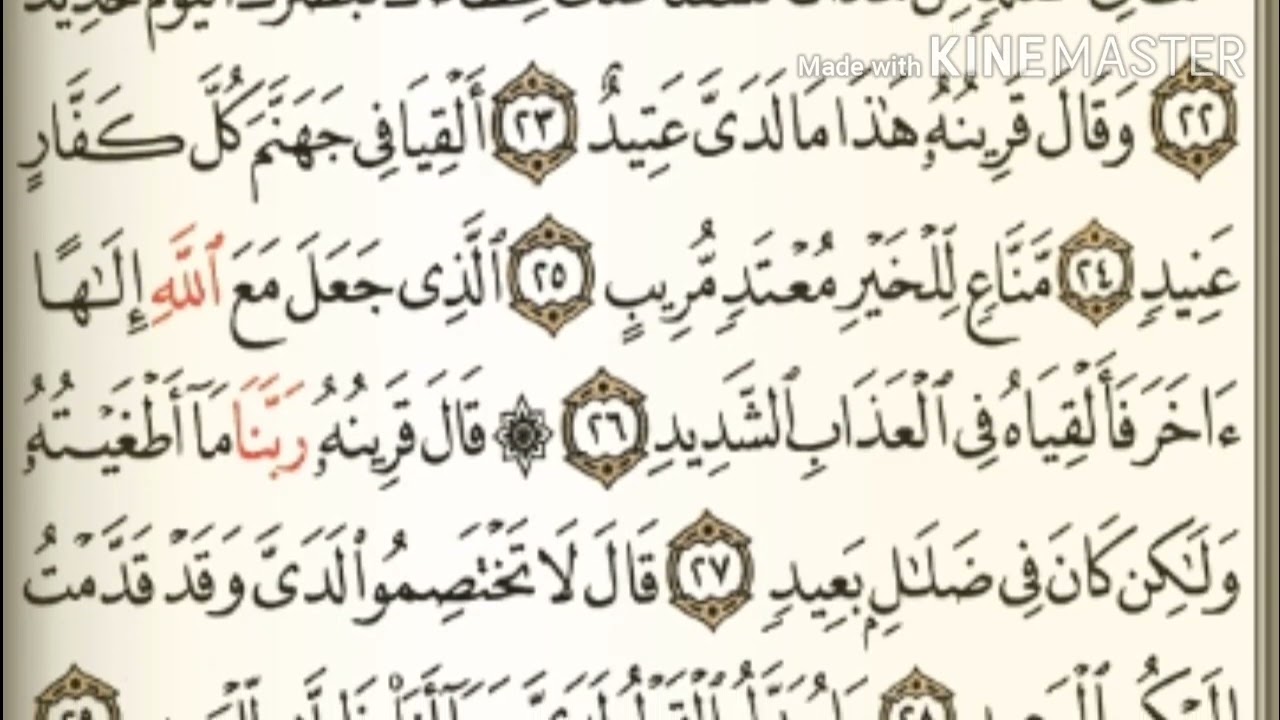 Made with KINEMASTER
٢٢ وَقَالَ قَرِينُهُۥ هَٰذَا مَا لَدَىَّ عَتِيدٌ ٢٣ أَلْقِيَا فِى جَهَنَّمَ كُلَّ كَفَّارٍ
عَنِيدٍ ٢٤ مَّنَّاعٍ لِّلْخَيْرِ مُعْتَدٍ مُّرِيبٍ ٢٥ ٱلَّذِى جَعَلَ مَعَ ٱللَّهِ إِلَٰهًا
ءَاخَرَ فَأَلْقِيَاهُ فِى ٱلْعَذَابِ ٱلشَّدِيدِ ٢٦ ۞ قَالَ قَرِينُهُۥ رَبَّنَا مَآ أَطْغَيْتُهُۥ
وَلَٰكِن كَانَ فِى ضَلَٰلٍۭ بَعِيدٍ ٢٧ قَالَ لَا تَخْتَصِمُوا۟ لَدَىَّ وَقَدْ قَدَّمْتُ